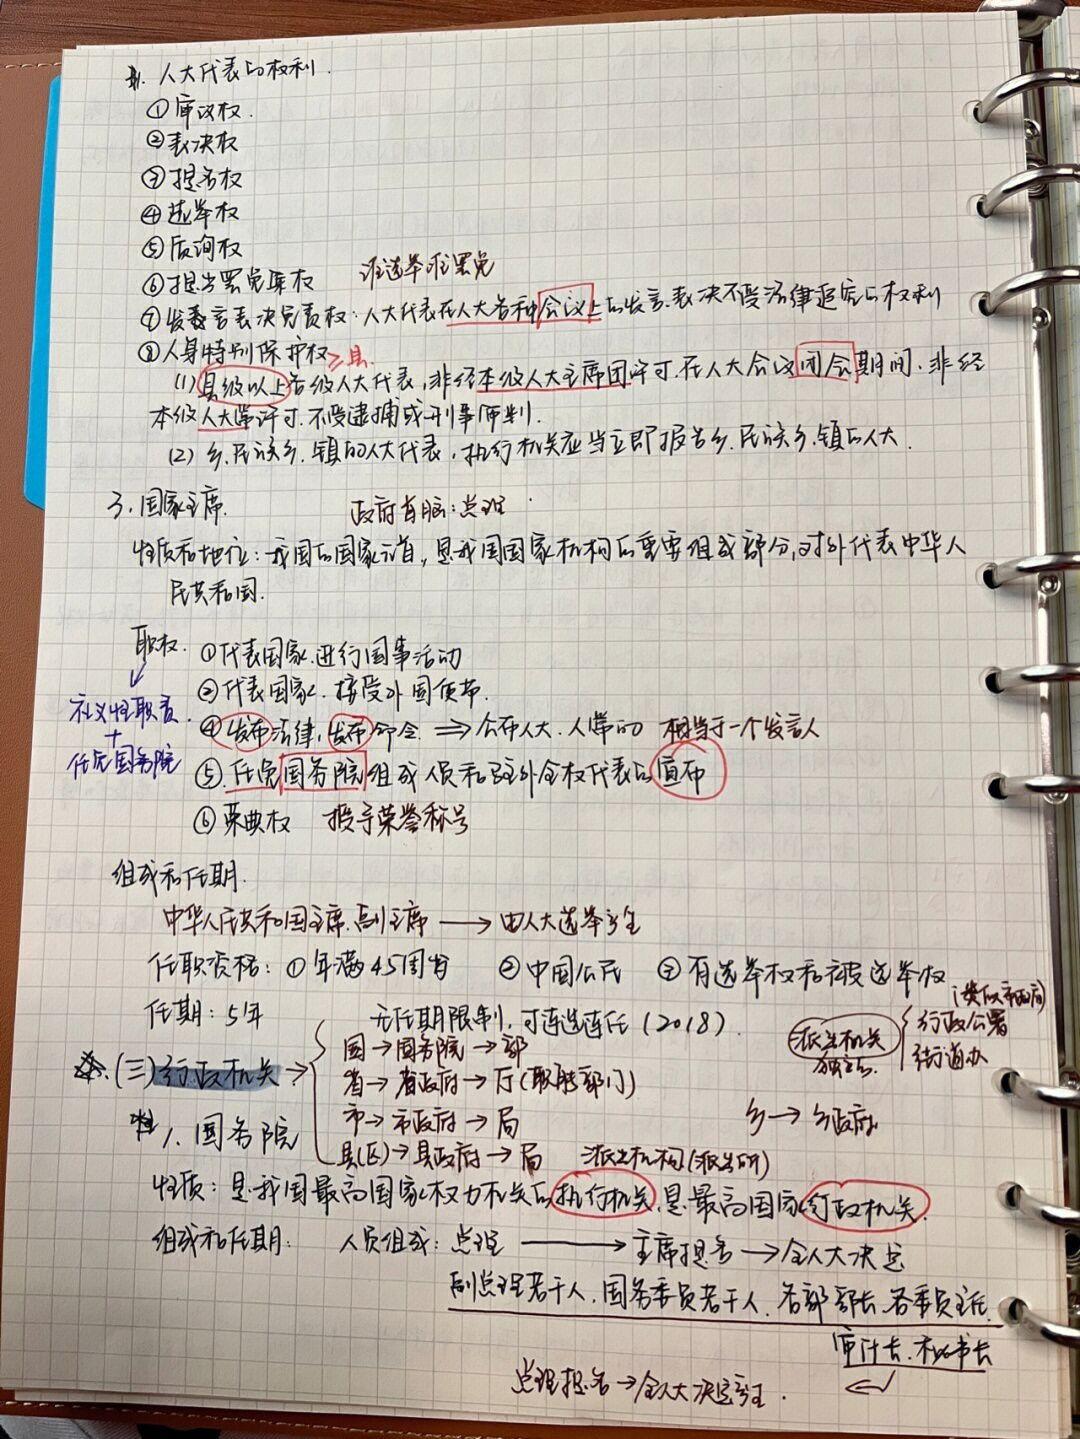 人大代表的权利.
①审议权.
②表决权
③提名权
④选举权
⑤质询权
⑥提出罢免案权 谁选举谁罢免
⑦发言表决免责权:人大代表在人大各种会议上的发言.表决不受法律追究的权利
⑧人身特别保护权 ≥县.
(1)县级以上各级人大代表,非经本级人大主席团许可.在人大会议闭会期间,非经
本级人大常许可.不受逮捕或刑事审判.
(2)乡.民族乡.镇的人大代表,执行机关应当立即报告乡.民族乡.镇的人大.
3.国家主席. 政府首脑:总理
性质和地位:我国的国家元首,是我国国家机构的重要组成部分,对外代表中华人
民共和国.
职权. ①代表国家.进行国事活动
②代表国家.接受外国使节.
礼仪性职责. ④发布法律,发布命令 ⇒公布人大.人常的 相当于一个发言人
+
任免国务院 ⑤.任免国务院组成人员和驻外全权代表的宣布
⑥荣典权 授予荣誉称号
组成和任期.
中华人民共和国主席.副主席→由人大选举产生
任职资格:①年满45周岁 ②中国公民 ③有选举权和被选举权
任期:5年 无任期限制,可连选连任(2018). (类似市政府)
派出机关 行政公署
独立 街道办
(三)行政机关→ 国→国务院→部
省→省政府→厅(职能部门)
市→市政府→局 乡→乡政府
1.国务院 县(区)→县政府→局 派出机构(派出所)
性质:是我国最高国家权力机关的执行机关.是最高国家行政机关.
组成和任期: 人员组成:总理→主席提名→全人大决定
副总理若干人.国务委员若干人.各部部长.各委员主任.
审计长.秘书长
总理提名→全人大决定产生.